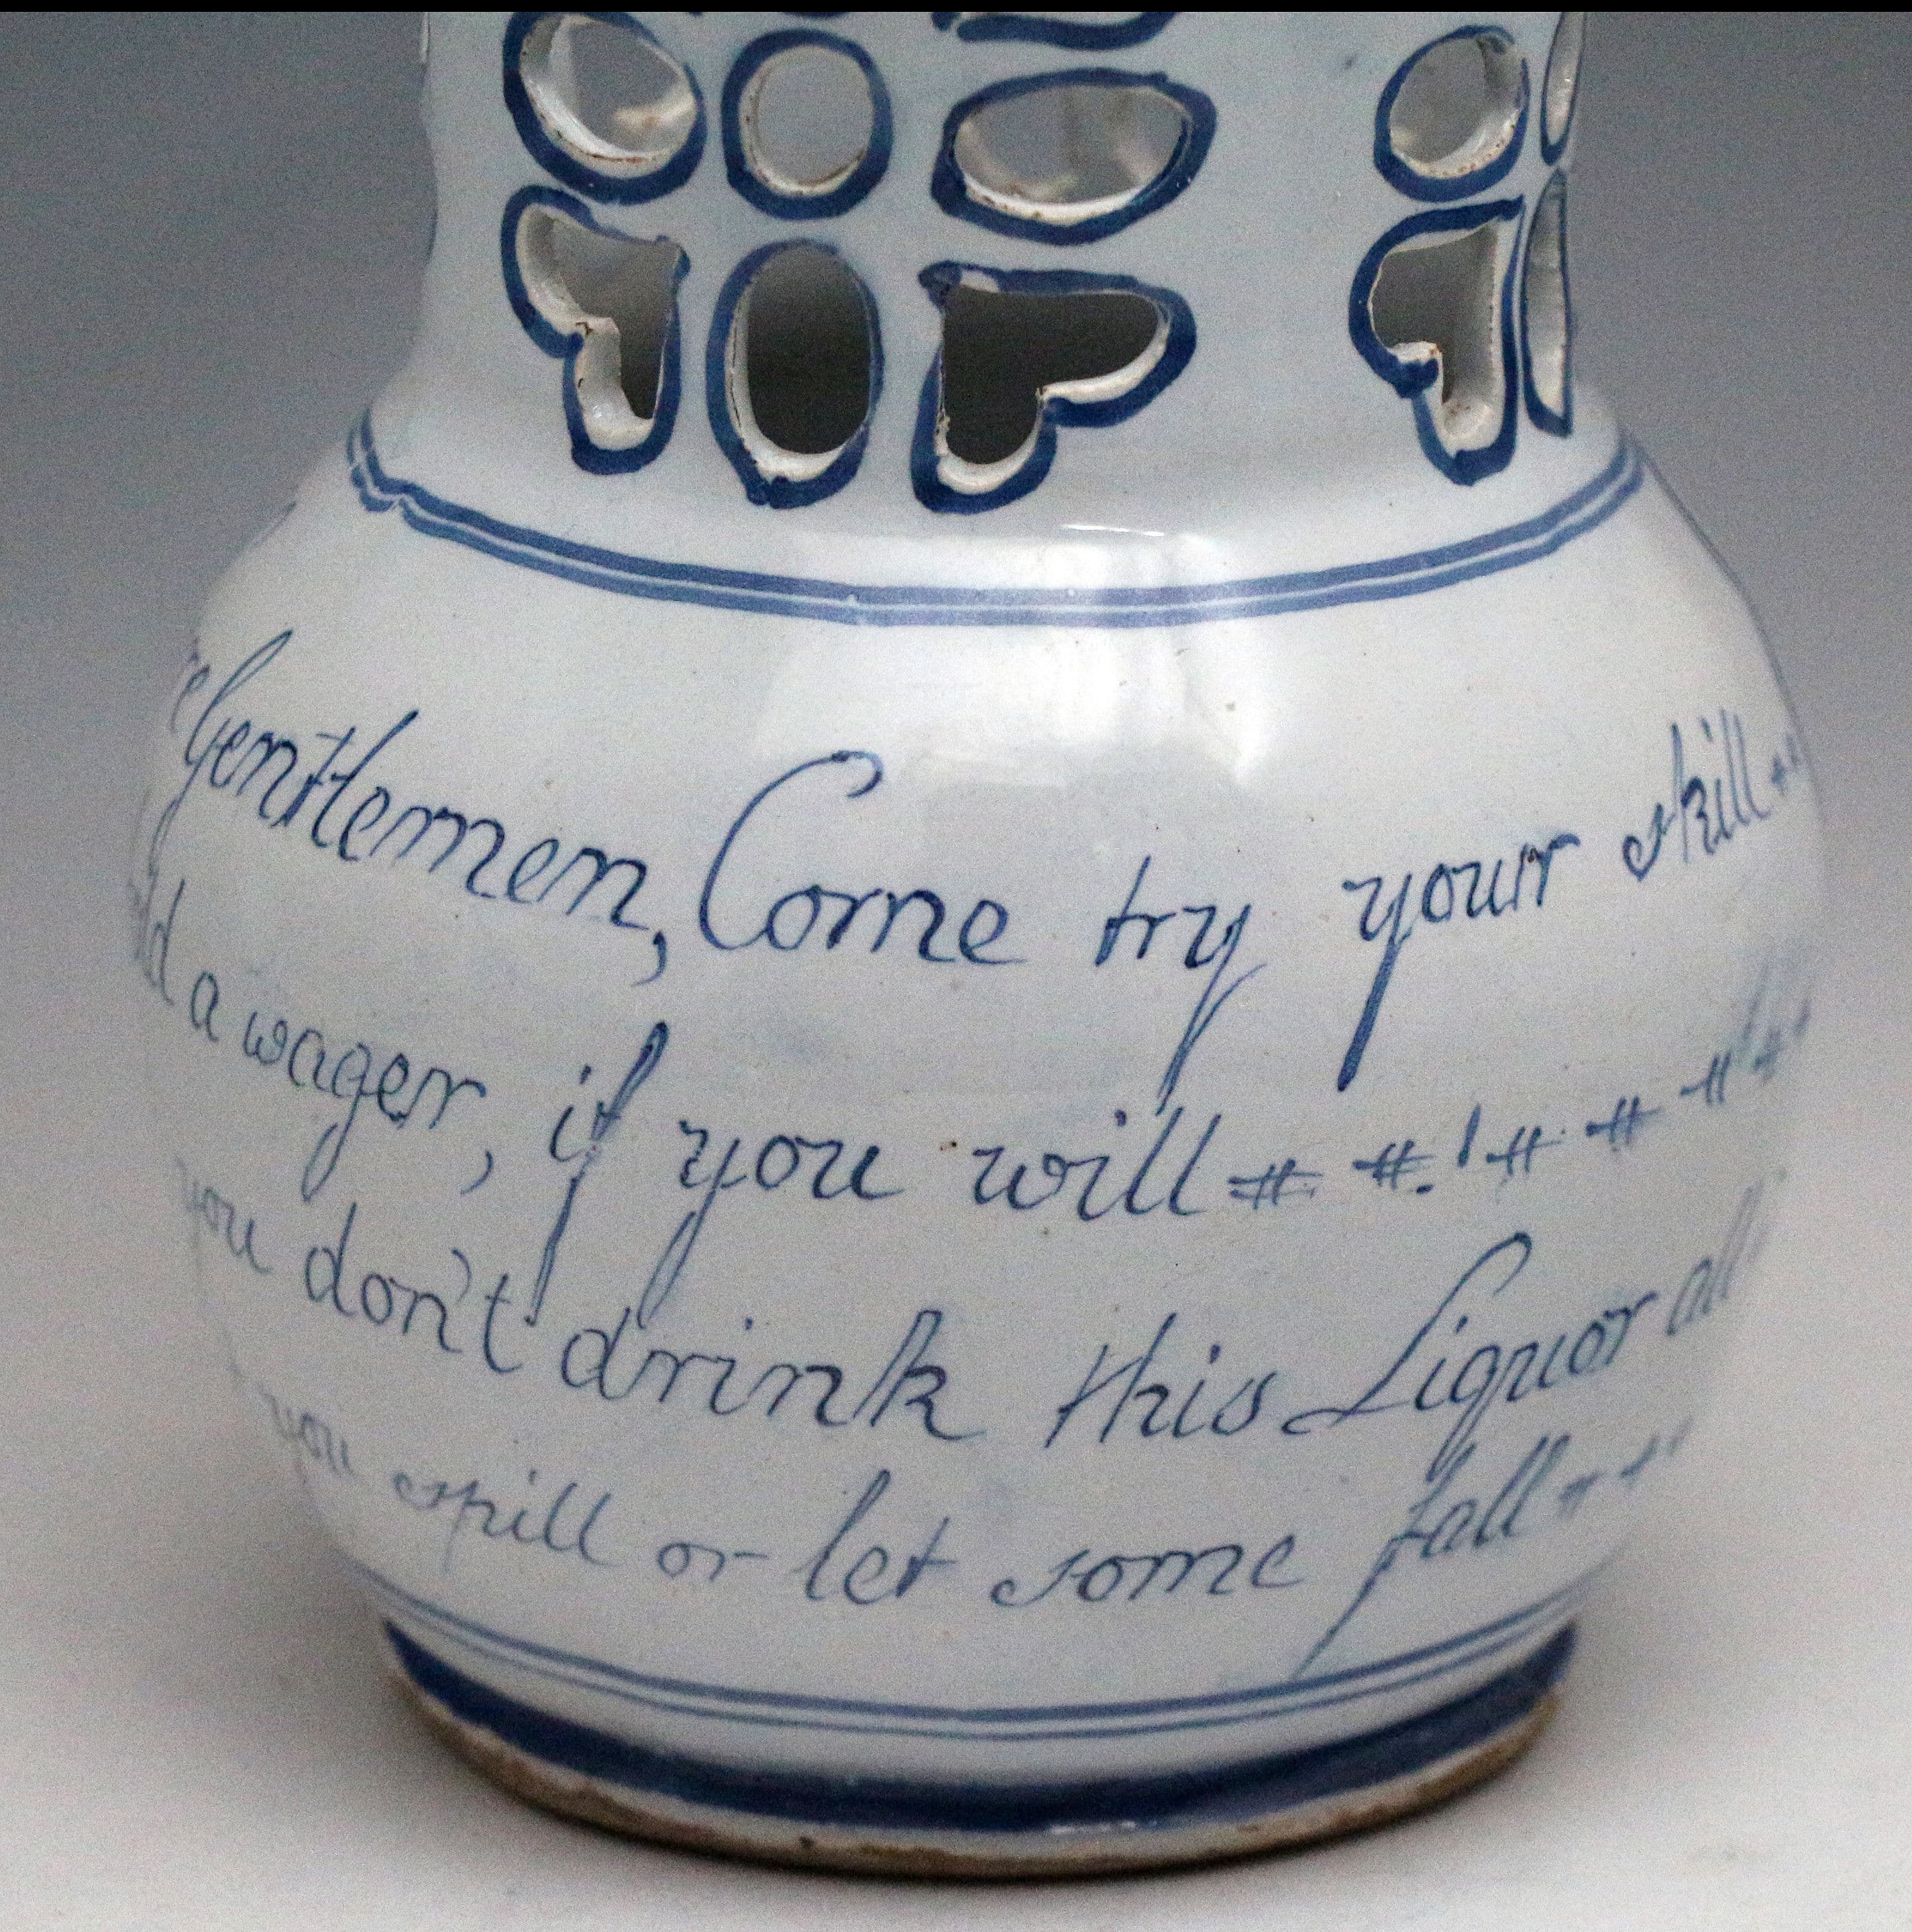 Gentlemen, Come try your skill
a wager, if you will # #.'# # #
you don't drink this Liquor all
you spill or let some fall